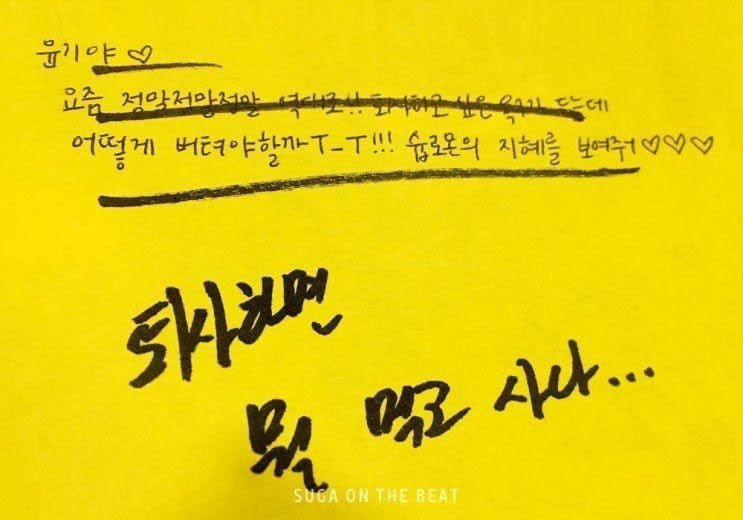 윤기야♡
요즘 정말정말정말 역대로!! 퇴사하고 싶은 욕구가 드는데
어떻게 버텨야할까T_T!!! 슙로몬의 지혜를 보여줘♡♡♡
퇴사하면
뭘 먹고 사나...
SUGA ON THE BEAT